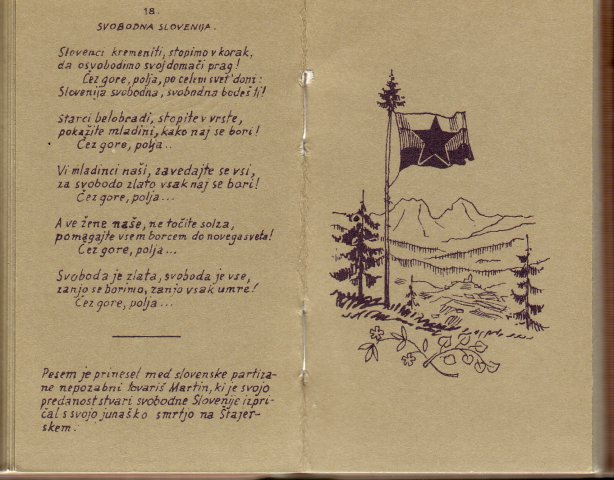 18.
SVOBODNA SLOVENIJA.
Slovenci kremeniti, stopimo v korak,
da osvobodimo svoj domači prag!
Čez gore, polja, po celem svet' doni:
Slovenija svobodna, svobodna bodeš ti!
Starci belobradi, stopite v vrste,
pokažite mladini, kako naj se bori!
Čez gore, polja..
Vi mladinci naši, zavedajte se vsi,
za svobodo zlato vsak naj se bori!
Čez gore, polja...
A ve žene naše, ne točite solza,
pomagajte vsem borcem do novega sveta!
Čez gore, polja...
Svoboda je zlata, svoboda je vse,
zanjo se borimo, zanjo vsak umre!
Čez gore, polja...
Pesem je prinesel med slovenske partiza-
ne nepozabni tovariš Martin, ki je svojo
predanost stvari svobodne Slovenije izpri-
čal s svojo junaško smrtjo na Štajer-
skem.